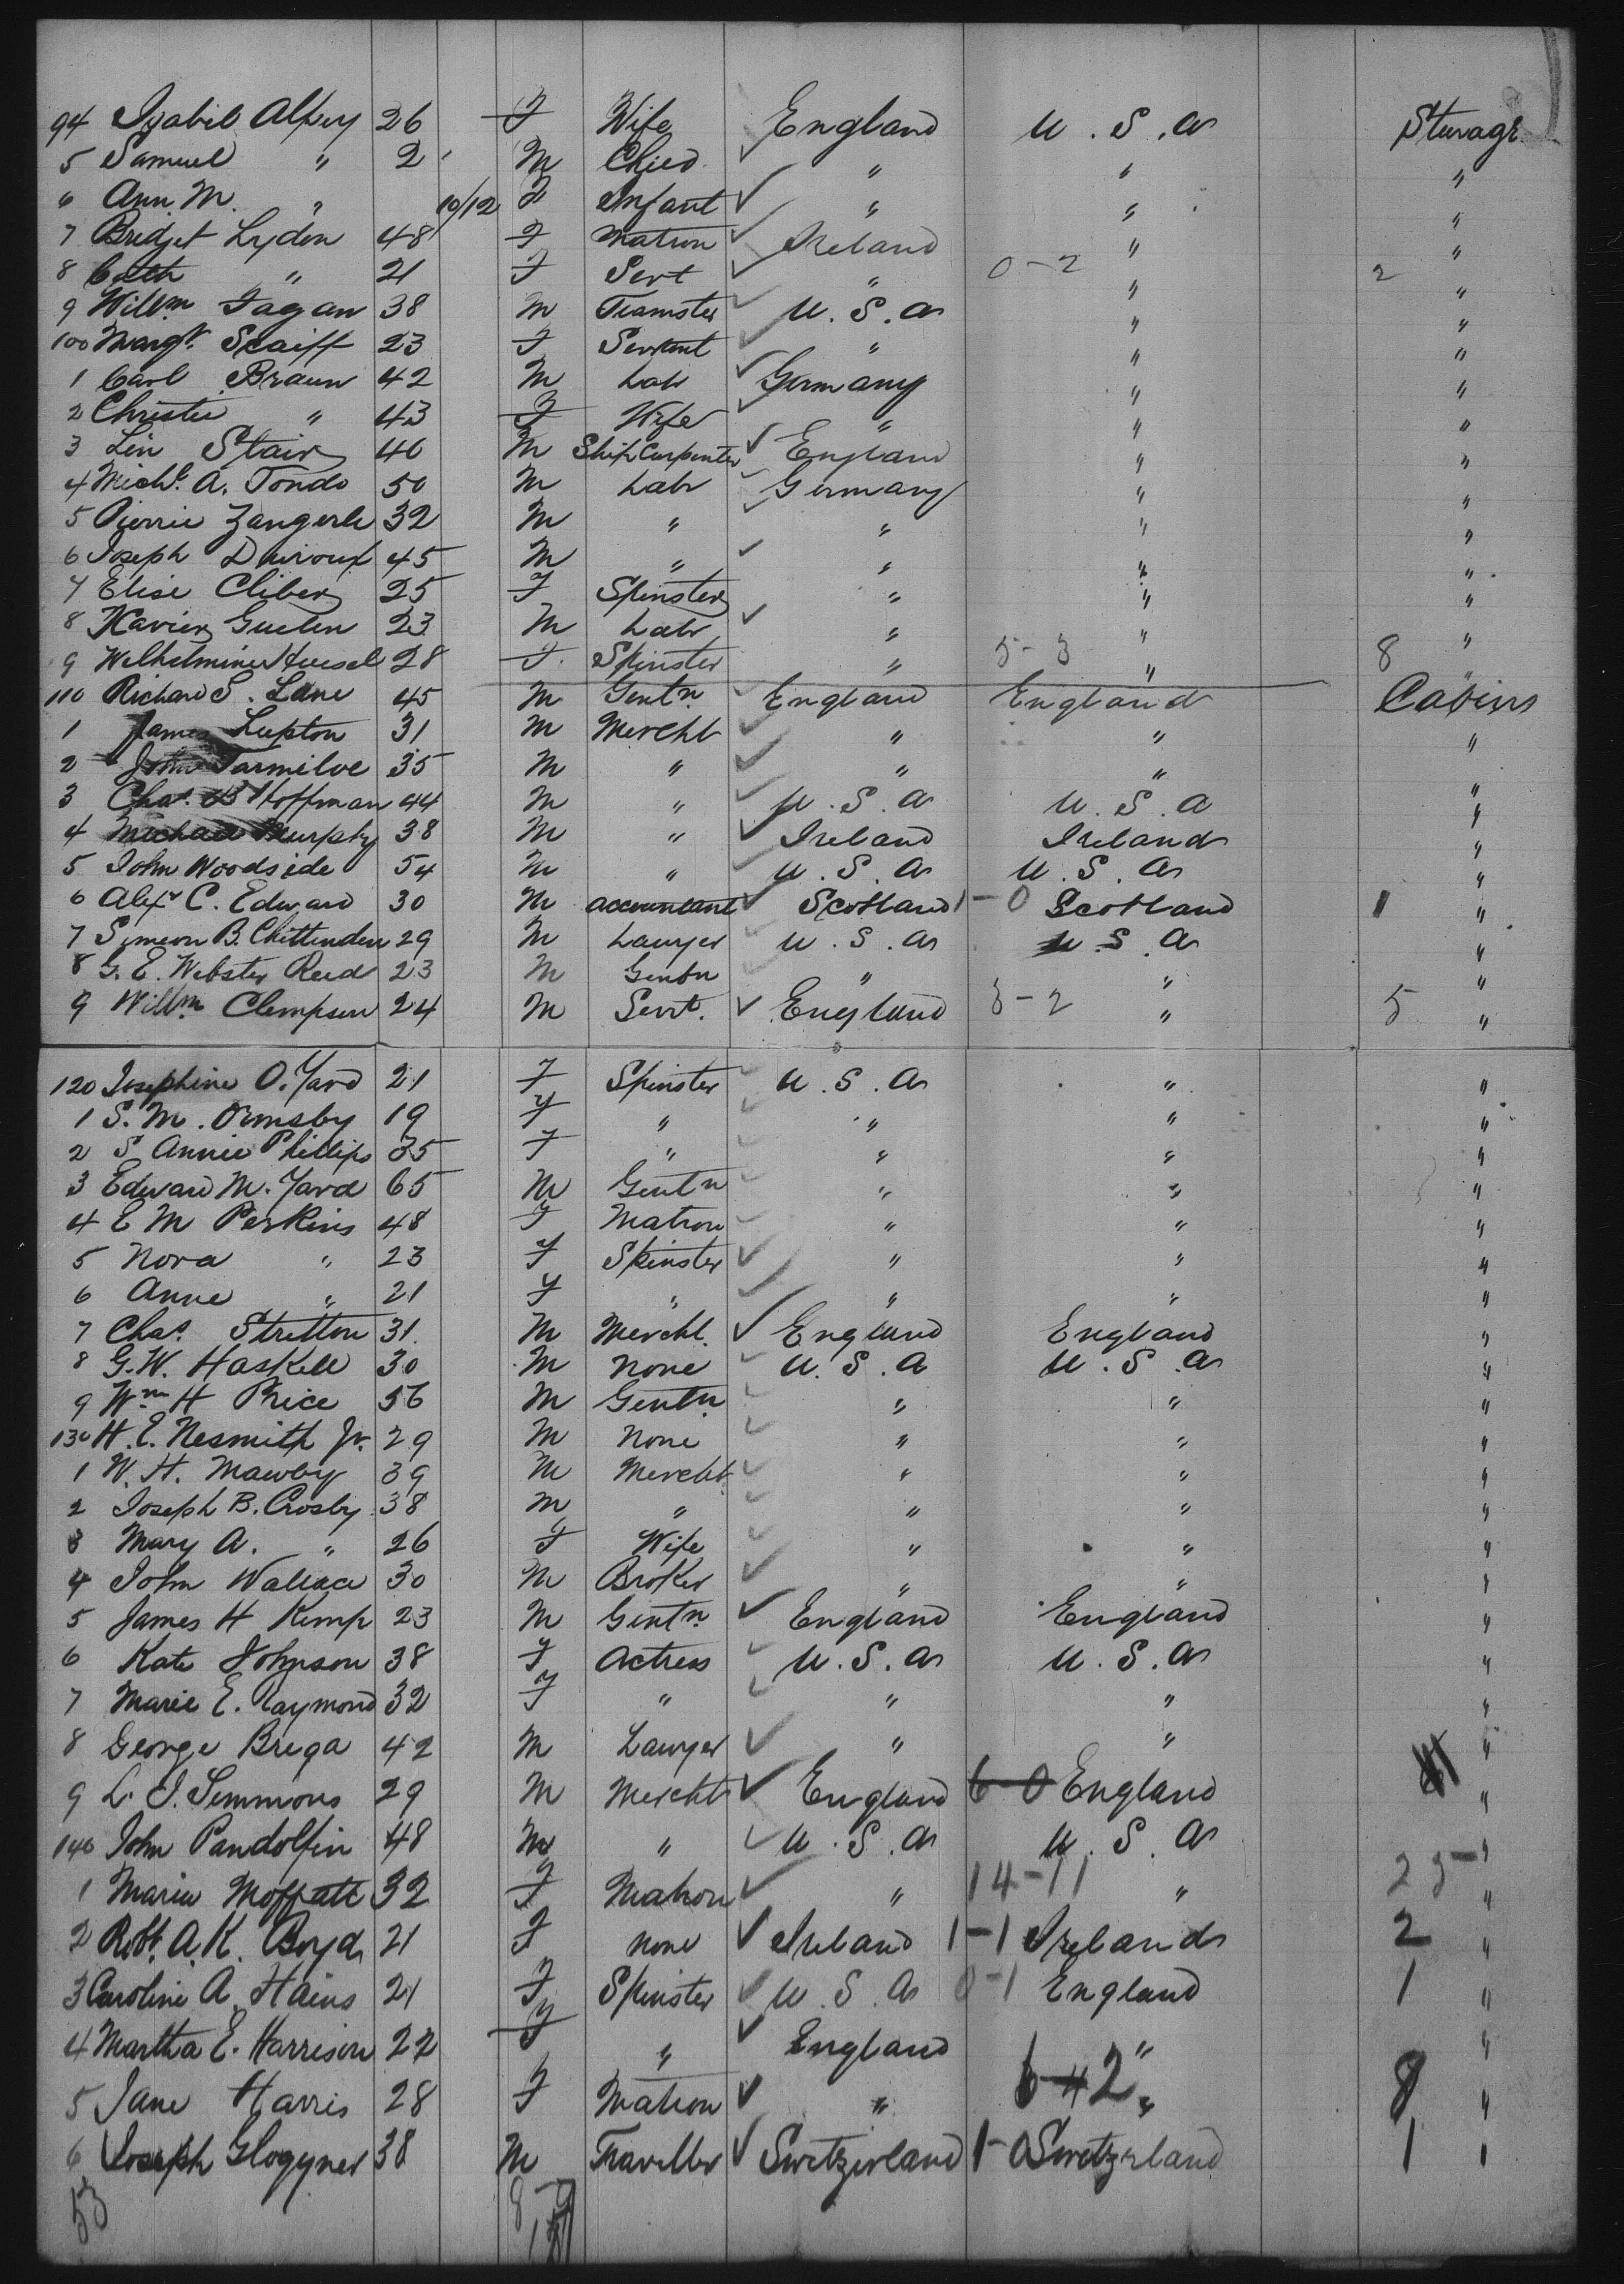 94 Izabil Alpey 26 F Wife England U.S.A Sturage
5 Samuel " 2 M Child " " "
6 Ann M. " 10/12 F Infant " " "
7 Bridget Lyden 48 F Matron Ireland " "
8 Cath " 21 F Sert " 0-2 " 2 "
9 Willm Fagan 38 M Teamster U.S.A " "
100 Margt Scaiff 23 F Servant " " "
1 Carl Braun 42 M Labr Germany " "
2 Christie " 43 F Wife " " "
3 Lin Stair 40 M Ship Carpenter England " "
4 Michl. A. Tondo 50 M Labr Germany " "
5 Pierrie Zangerle 32 M " " " "
6 Joseph 45 M " " " "
7 Elise Cliber 25 F Spinster " " "
8 Xavier Guelen 23 M Labr " " "
9 Wilhelmine 28 F. Spinster " 5-3 " 8 "
110 Richard S. Lane 45 M Gentn England England Cabins
1 James Lupton 31 M Mercht " " "
2 John Tarmiloe 35 M " " " "
3 Chas. B Hoffman 44 M " U.S.A U.S.A "
4 Michael Murphy 38 M " Ireland Ireland "
5 John Woodside 54 M " U.S.A U.S.A "
6 Alexr C. Edward 30 M accountant Scotland 1-0 Scotland 1 "
7 Simeon B. Chittenden 29 M Lawyer U.S.A U.S.A "
8 G. E. Webster Reed 23 M Gentn " " "
9 Willm Clempson 24 M Servt. England 3-2 " 5 "
120 Josephine O. Yard 21 F Spinster U.S.A " "
1 S. M. Ormsby 19 F " " " "
2 S Annie Phillips 35 F " " " "
3 Edward M. Yard 65 M Gentn " " "
4 E M Perkins 48 F Matron " " "
5 Nora " 23 F Spinster " " "
6 Anne " 21 F " " " "
7 Chas. Stretton 31. M Mercht. England England "
8 G.W. Haskell 30 M none U.S.A U.S.A "
9 Wm H Price 56 M Gentn " " "
130 H. E. Nesmith Jr. 29 M None " " "
1 W. H. Mawby 39 M Mercht " " "
2 Joseph B. Crosby 38 M " " " "
3 Mary A. " 26 F Wife " " "
4 John Wallace 30 M Broker " " "
5 James H Kemp 23 M Gentn England England "
6 Kate Johnson 38 F Actress U.S.A U.S.A "
7 Marie E. Raymond 32 F " " " "
8 George Brega 42 M Lawyer " " "
9 L. J. Simmons 29 M Mercht England 6-0 England "
140 John Pandolfin 48 M " U.S.A U.S.A "
1 Maria Moffatt 32 F Matron " 14-11 " 25 "
2 Robt. A. K. Boyd 21 F none Ireland 1-1 Ireland 2 "
3 Caroline A. Hains 21 F Spinster U.S.A 0-1 England 1 "
4 Martha E. Harrison 22 F " England " "
5 Jane Harris 28 F Matron " 6-2 " 8 "
6 Joseph Glogyner 38 M Traveller Switzerland 1-0 Switzerland 1 "
53